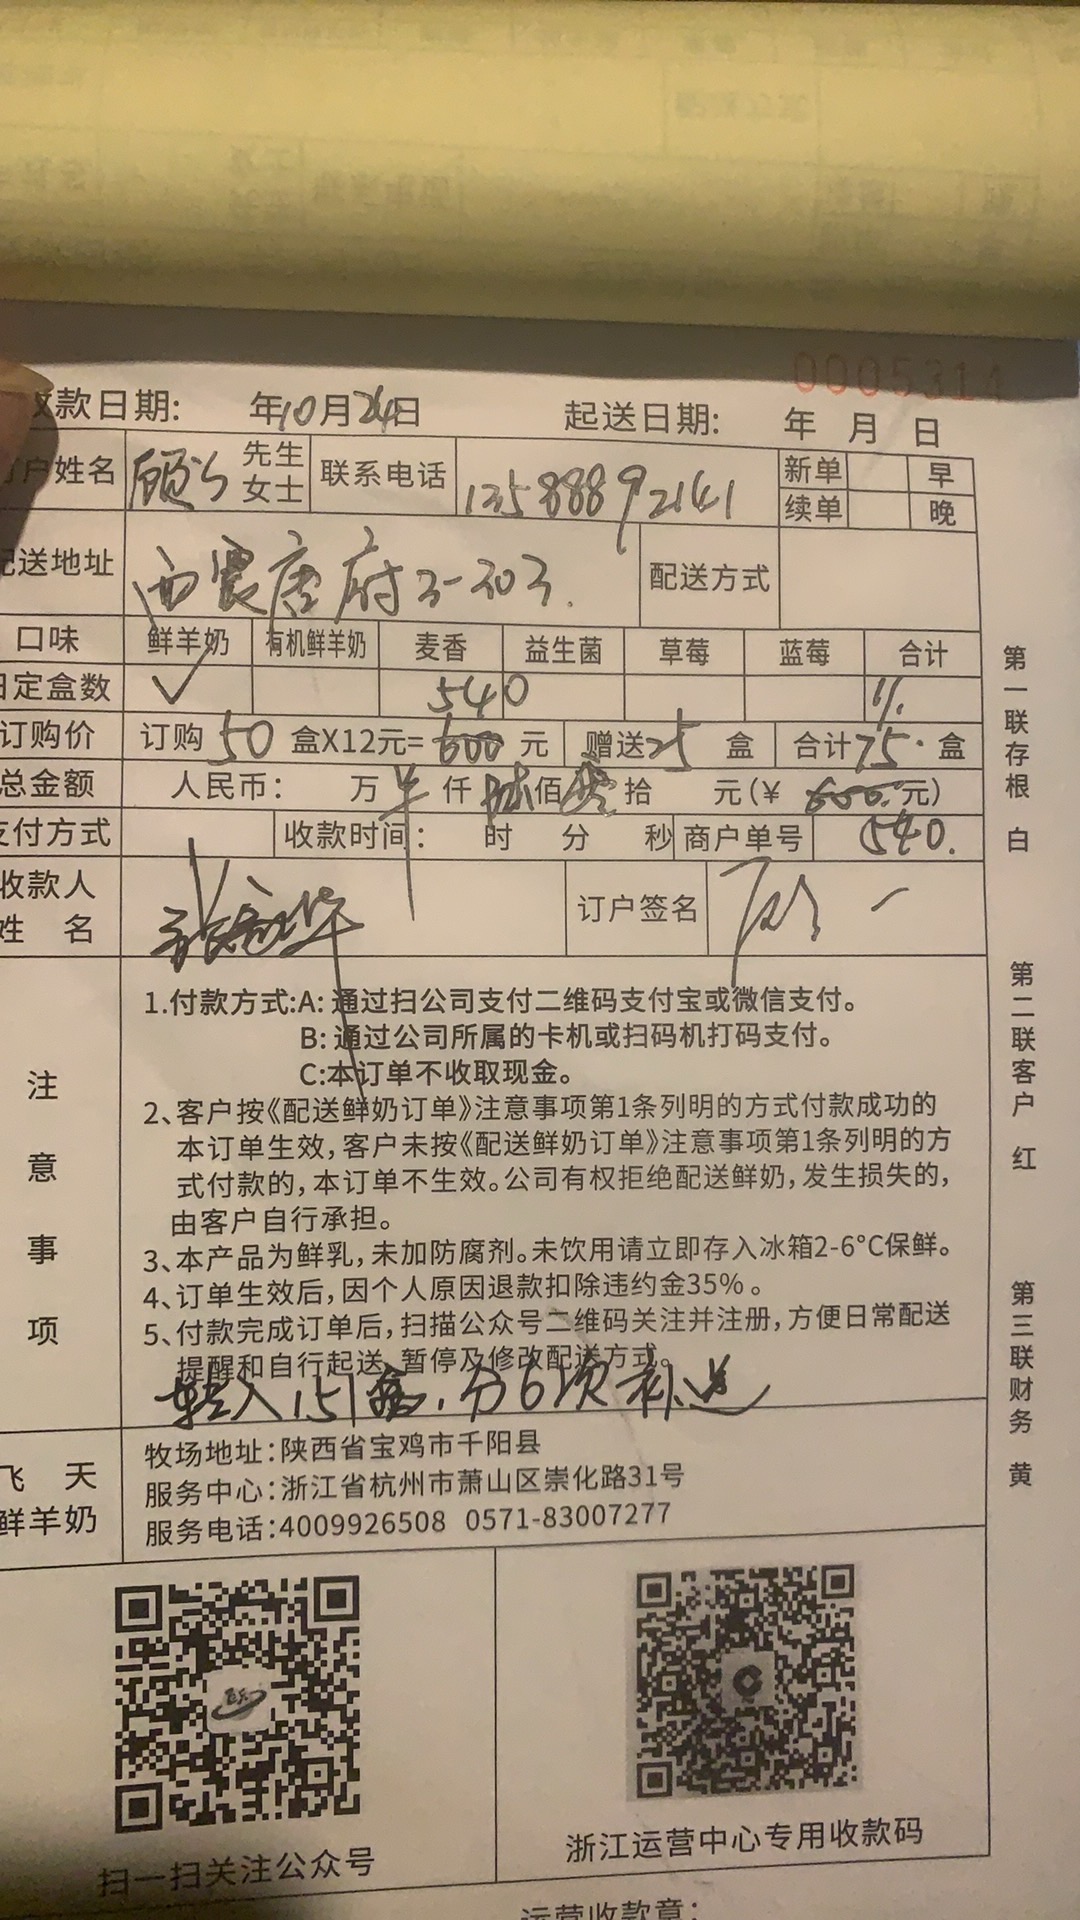 0005314
收款日期: 年10月24日 起送日期: 年 月 日
订户姓名 顾 先生 女士 联系电话 13588892141 新单 早
续单 晚
配送地址 西 唐府3-303. 配送方式
口味 鲜羊奶 有机鲜羊奶 麦香 益生菌 草莓 蓝莓 合计
日定盒数 ✓ 540
订购价 订购50盒X12元=600元 赠送25盒 合计75.盒
总金额 人民币: 万 仟 佰 拾 元(¥ 600.元)
支付方式 收款时间: 时 分 秒 商户单号 540.
收款人
姓 名 订户签名
注意事项
1.付款方式:A: 通过扫公司支付二维码支付宝或微信支付。
B: 通过公司所属的卡机或扫码机打码支付。
C:本订单不收取现金。
2、客户按《配送鲜奶订单》注意事项第1条列明的方式付款成功的
本订单生效,客户未按《配送鲜奶订单》注意事项第1条列明的方
式付款的,本订单不生效。公司有权拒绝配送鲜奶,发生损失的,
由客户自行承担。
3、本产品为鲜乳,未加防腐剂。未饮用请立即存入冰箱2-6°C保鲜。
4、订单生效后,因个人原因退款扣除违约金35%。
5、付款完成订单后,扫描公众号二维码关注并注册,方便日常配送
提醒和自行起送,暂停及修改配送方式。
转入151盒,分6次补送
飞 天
鲜羊奶
牧场地址:陕西省宝鸡市千阳县
服务中心:浙江省杭州市萧山区崇化路31号
服务电话:4009926508 0571-83007277
第一联存根 白
第二联客户 红
第三联财务 黄
扫一扫关注公众号
浙江运营中心专用收款码
运营收款章: